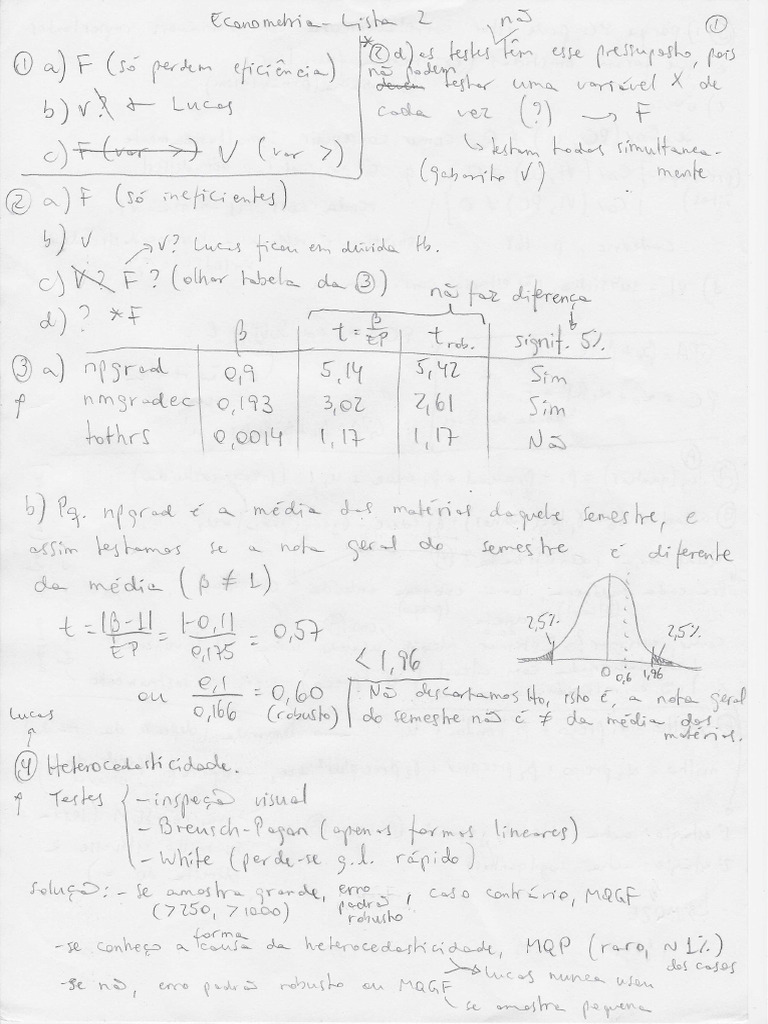 Econometria - Lista 2
①
① a) F (só perdem eficiência)
b) V? ← Lucas
c) F (var >) V (var >)
* ② d) os testes não têm esse pressuposto, pois
não podem devem testar uma variável X de
cada vez (?) → F
↳ testam todas simultanea-
mente
(gabarito V)
② a) F (só ineficientes)
b) V
→ V? Lucas ficou em dúvida tb.
c) V? F? (olhar tabela da ③)
d) ? *F
não faz diferença
β t = β/EP t rob. signif. 5%
③ a) npgrad 0,9 5,14 5,42 Sim
nmgradec 0,193 3,02 2,61 Sim
tothrs 0,0014 1,17 1,17 Não
b) Pq. npgrad é a média das matérias daquele semestre, e
assim testamos se a nota geral do semestre é diferente
da média (β ≠ 1)
t = |β-1|/EP = |-0,1|/0,175 = 0,57
< 1,96
ou 0,1/0,166 = 0,60
(robusto)
2,5% 2,5%
0 0,6 1,96
Não descartamos Ho, isto é, a nota geral
do semestre não é ≠ da média das
matérias.
Lucas
④ Heterocedasticidade.
Testes { - inspeção visual
- Breusch-Pagan (apenas formas lineares)
- White (perde-se g.l. rápido)
Solução: - se amostra grande, erro padrão robusto, caso contrário, MQGF
(>250, >1000)
- se conheço a causa forma da heterocedasticidade, MQP (raro, ~1% dos casos)
→ Lucas nunca usou
- se não, erro padrão robusto ou MQGF
se amostra pequena